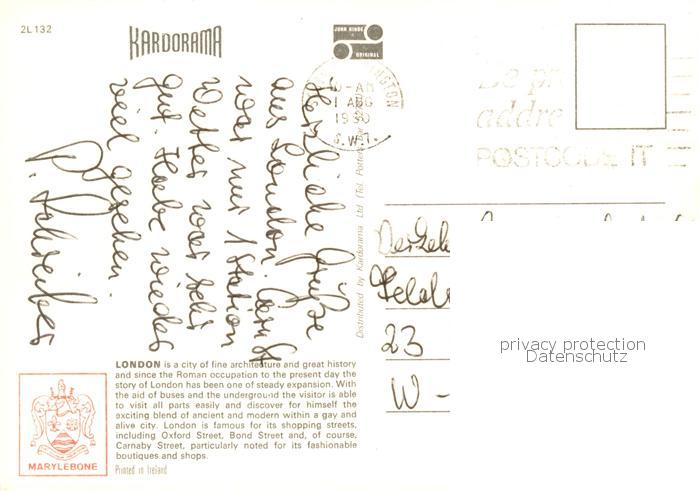 2L132
KARDORAMA
JOHN HINDE
ORIGINAL
0-AM
1 AUG
1990
S.W.7.
addre
POSTCODE IT
Herzliche Grüße
aus London.
war nur 1 Station
Wetter war sehr
gut. Habe wieder
viel gesehen.
P. Schreiber
Distributed by Kardorama Ltd (Tel. Potters Bar
23
W -
privacy protection
Datenschutz
LONDON is a city of fine architecture and great history
and since the Roman occupation to the present day the
story of London has been one of steady expansion. With
the aid of buses and the underground the visitor is able
to visit all parts easily and discover for himself the
exciting blend of ancient and modern within a gay and
alive city. London is famous for its shopping streets,
including Oxford Street, Bond Street and, of course,
Carnaby Street, particularly noted for its fashionable
boutiques and shops.
Printed in Ireland
MARYLEBONE